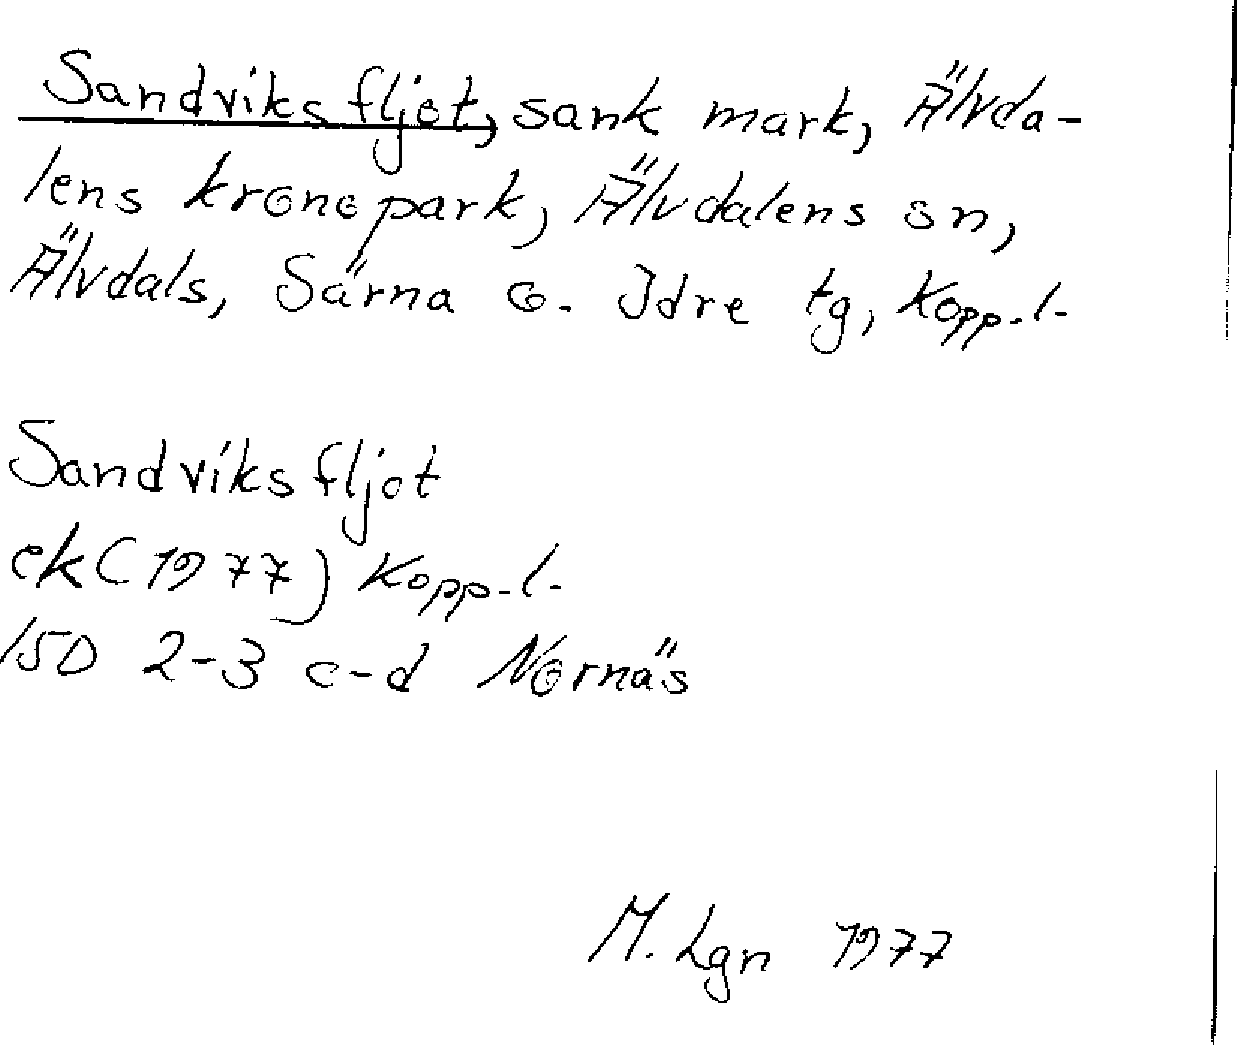 Sandviksfljot, sank mark, Älvda-
lens kronopark, Älvdalens sn,
Älvdals, Särna o. Idre tg, Kopp.l.
Sandviksfljot
ek (1977) Kopp.l.
15D 2-3 c-d Nornäs
M. Lgn 1977